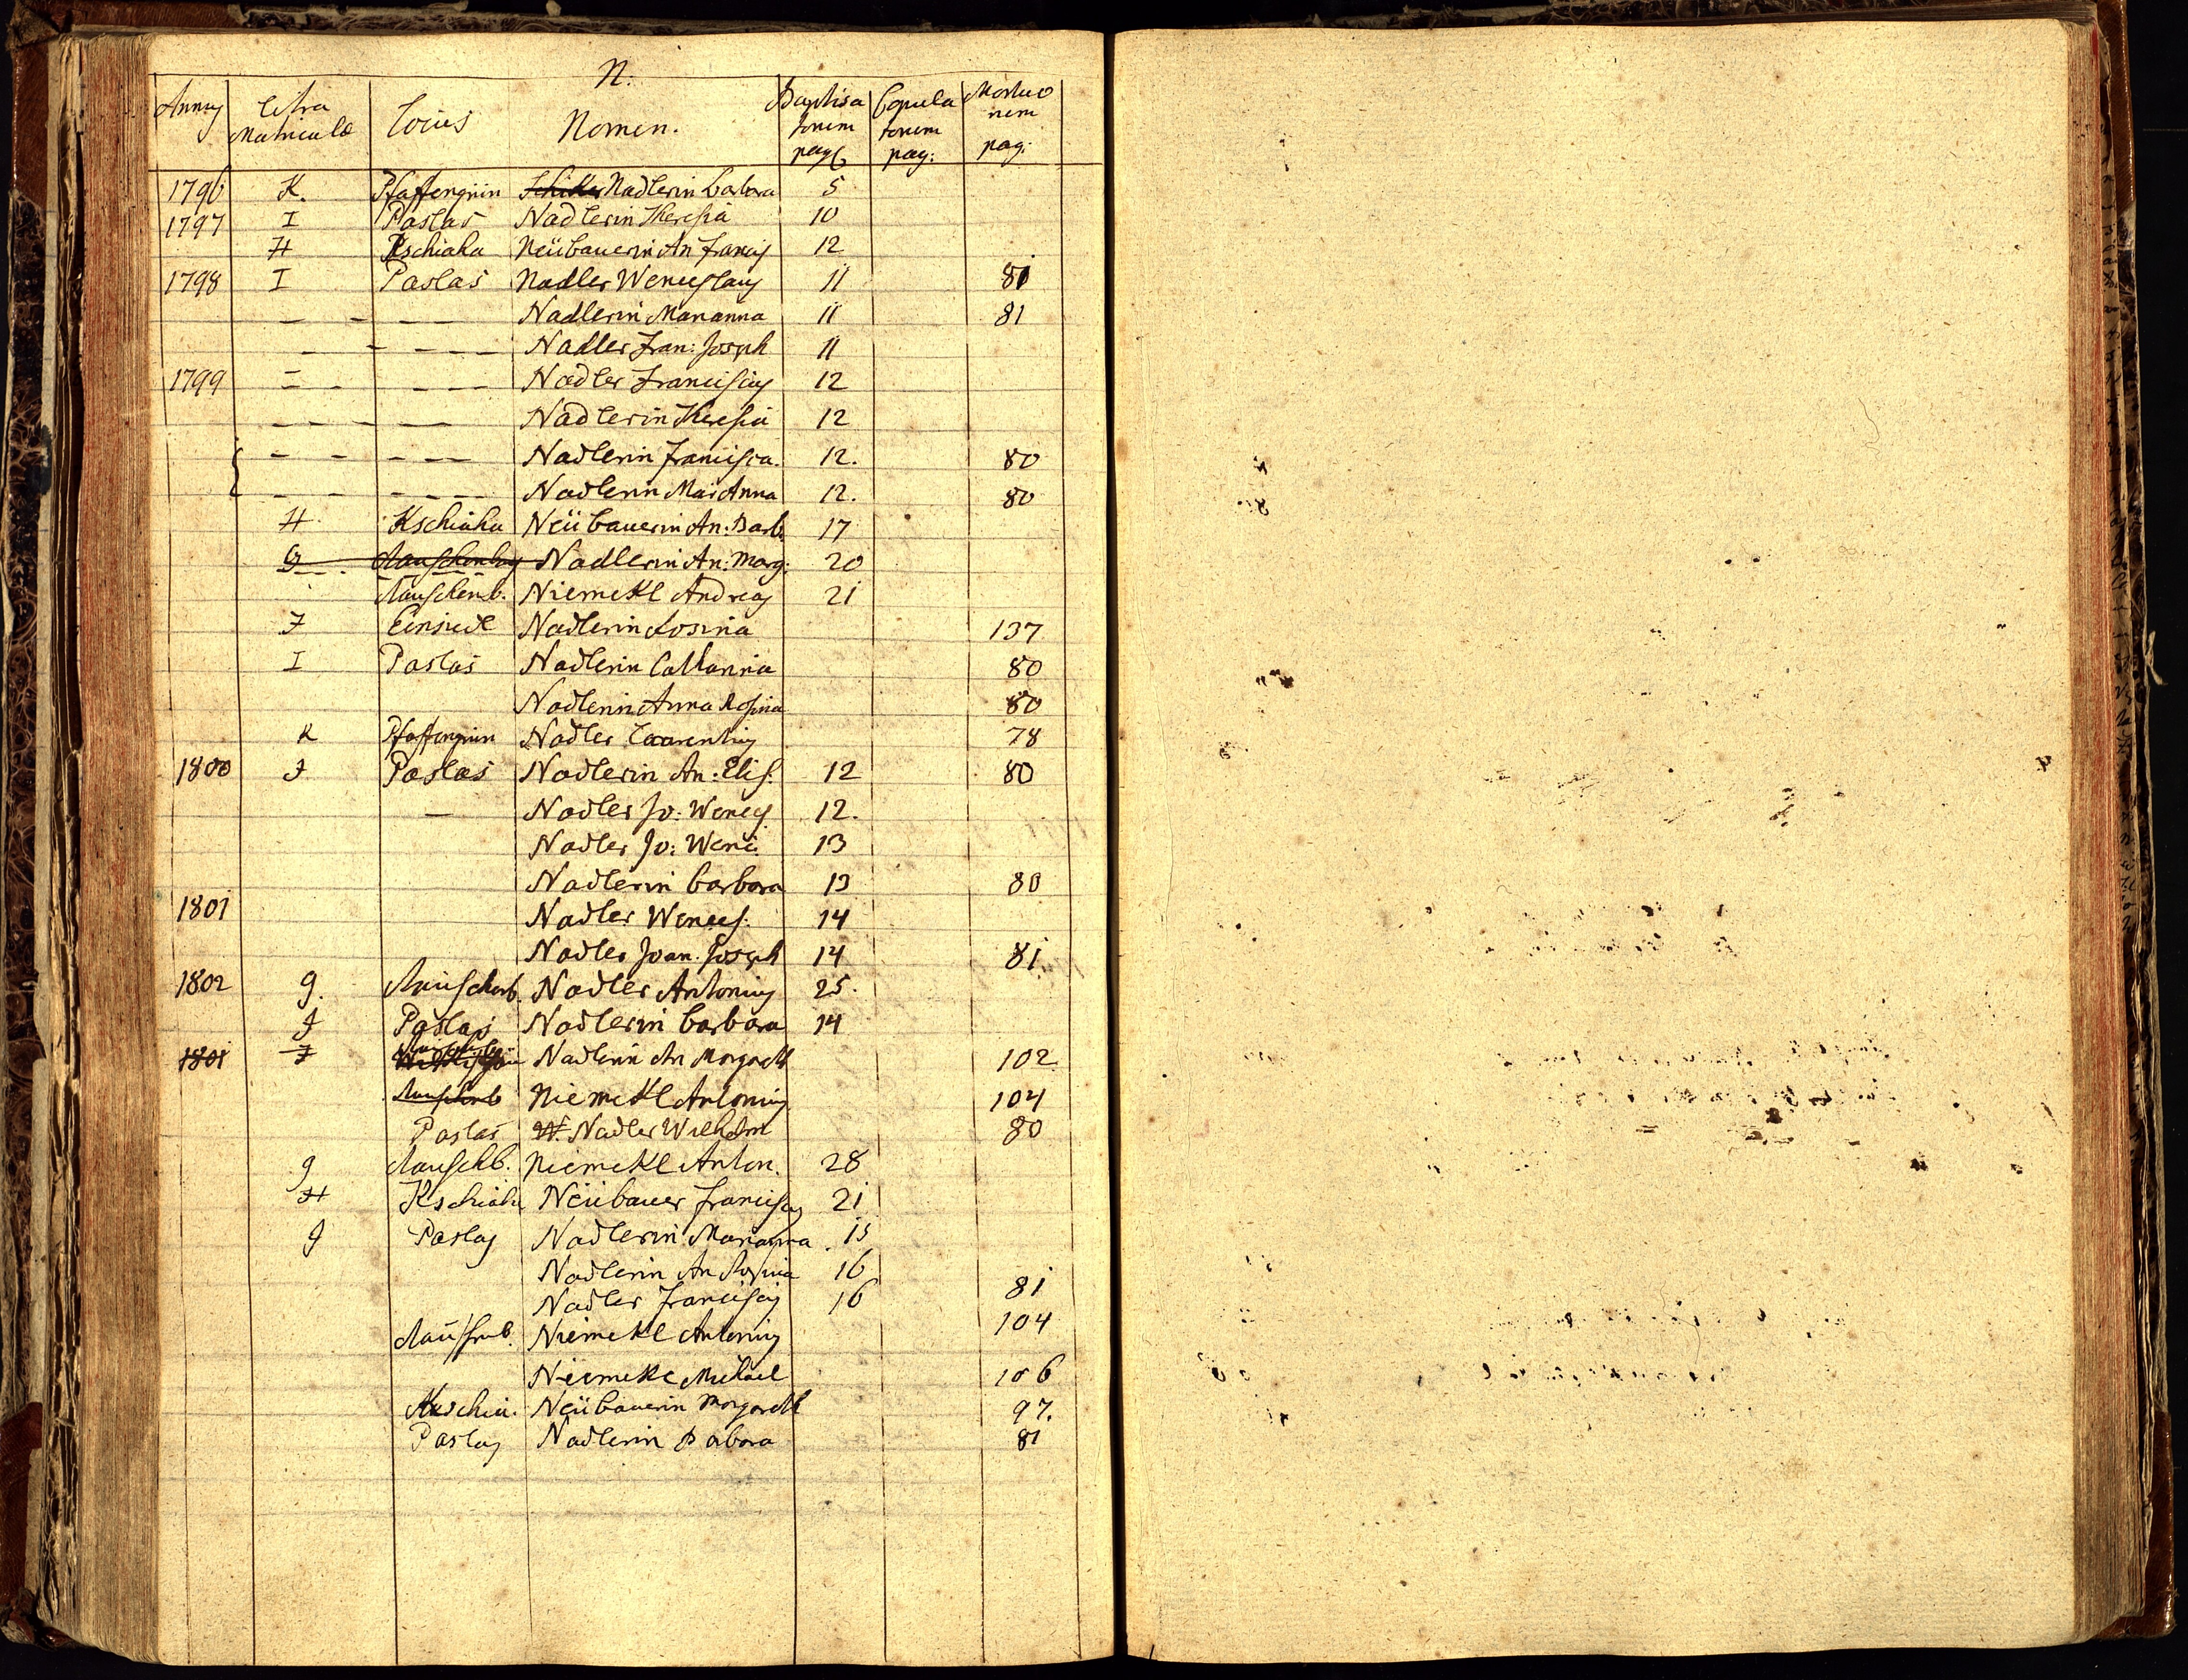 N.
Annus Litra Matriculæ Locus Nomen. Baptisatorum pag. Copulatorum pag: Mortuorum pag:
1796 K. Pfaffengrün Nadlerin Barbara 5
1797 I Paslas Nadlerin Theresia 10
H Kschiaha Neübauerin An Francis 12
1798 I Paslas Nadler Wenceslaus 11 81
– – – – Nadlerin Marianna 11 81
– – – – – Nadler Fran: Joseph 11
1799 – – – – – Nadler Franciscus 12
– – – – – – Nadlerin Theresia 12
– – – – – Nadlerin Francisca. 12. 80
– – – – – – Nadlerin Mari Anna 12. 80
H Kschiaha Neübauerin An: Barb. 17
G Rauschenbag Nadlerin An: Marg: 20
Rauschenb. Niemekl Andreas 21
F Einsiedl Nadlerin Rosina 137
I Paslas Nadlerin Catharina 80
Nadlerin Anna Rosina 80
K Pfaffengrün Nadler Laurentius 78
1800 I Paslas Nadlerin An: Elis. 12 80
– Nadler Jo: Wences. 12.
Nadler Jo: Wenc. 13
Nadlerin Barbara 13 80
1801 Nadler Wences. 14
Nadler Joan. Joseph 14 81
1802 g. Rauschenb. Nadler Antonius 25.
I Paslas Nadlerin Barbara 14
1801 F Nadlerin An Margareth 102
Rauschenb Niemekl Antonius 104
Paslas W. Nadler Wilhelm 80
g Rauschb. Niemekl Anton. 28
H Kschiaha Neübauer Franciscus 21
I Paslas Nadlerin Marianna 15
Nadlerin An Rosina 16
Nadler Franciscus 16 81
Rauschnb. Niemekl Antonius 104
Niemekl Michael 106
Kschia. Neübauerin Margareth 97.
Paslas Nadlerin Barbara 81